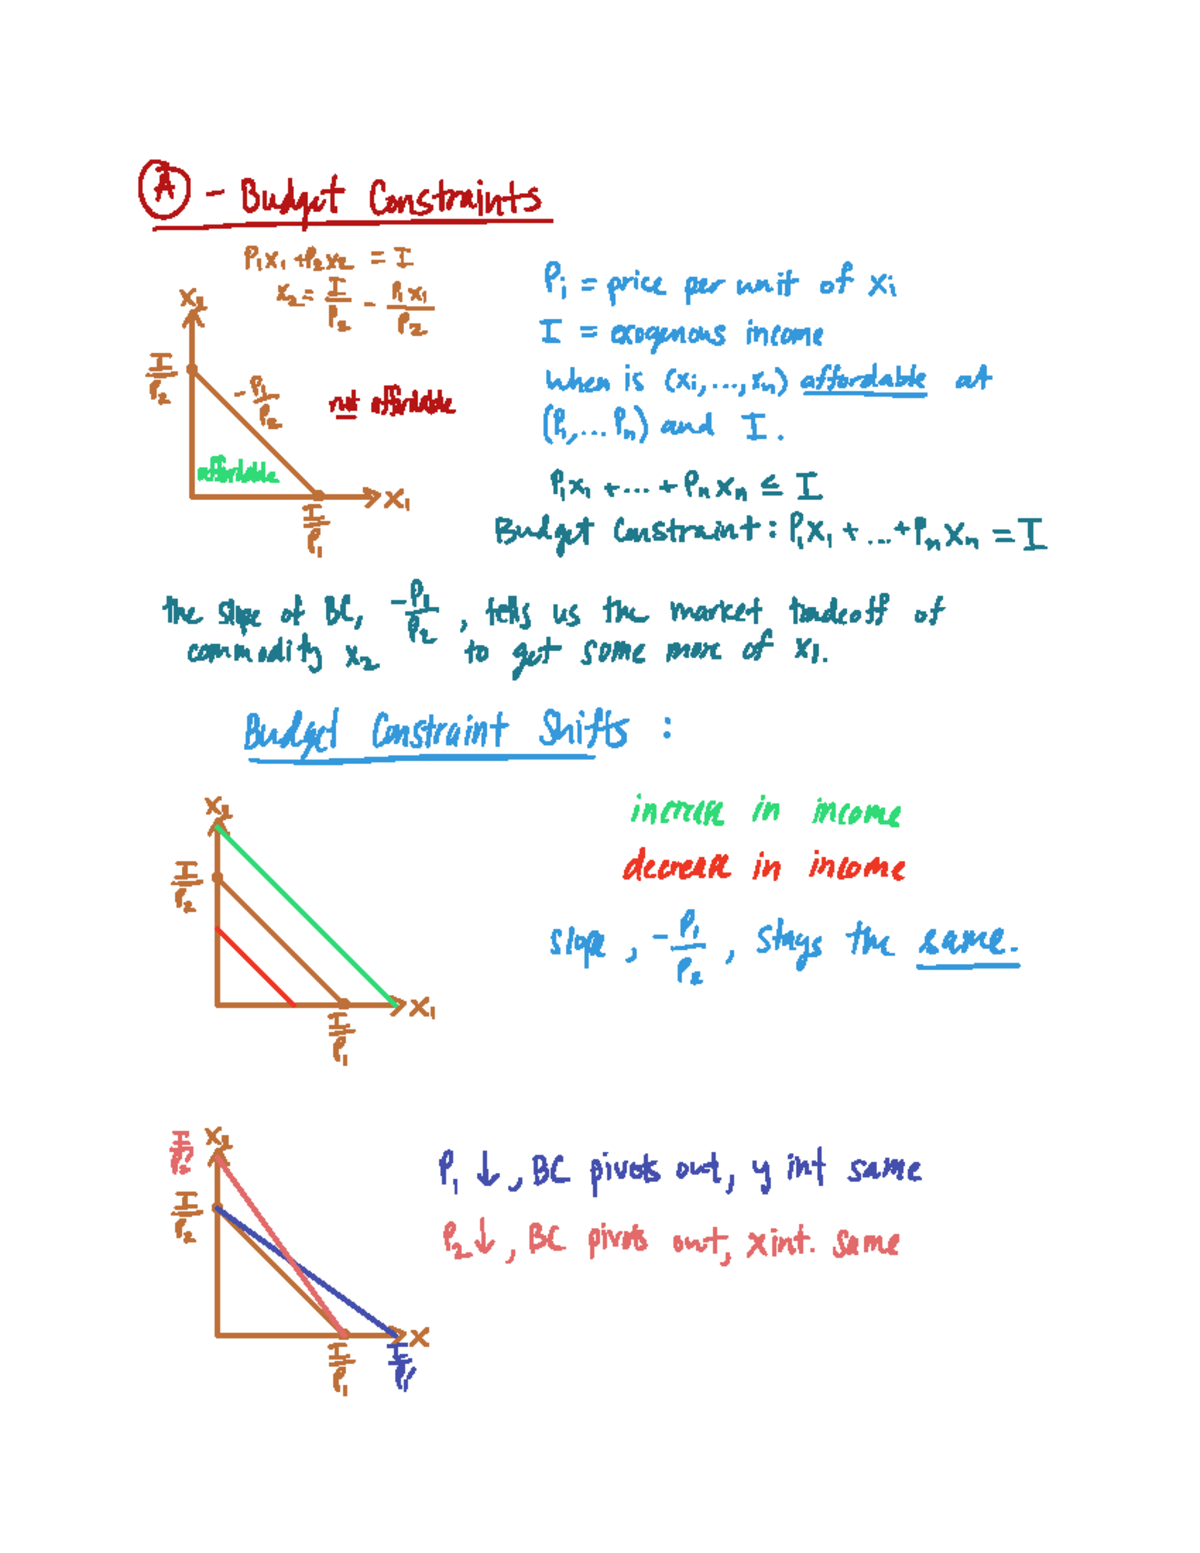 Ⓐ - Budget Constraints
P₁x₁ + P₂x₂ = I
x₂ = I/P₂ - P₁x₁/P₂
x₂
I/P₂
-P₁/P₂
not affordable
affordable
x₁
I/P₁
Pᵢ = price per unit of xᵢ
I = exogenous income
when is (xᵢ,...,xₙ) affordable at
(P₁,...Pₙ) and I.
P₁x₁ + ... + Pₙxₙ ≤ I
Budget Constraint: P₁x₁ + ... + Pₙxₙ = I
the slope of BC, -P₁/P₂, tells us the market tradeoff of
commodity x₂ to get some more of x₁.
Budget Constraint Shifts:
x₂
I/P₂
x₁
I/P₁
increase in income
decrease in income
slope, -P₁/P₂, stays the same.
I/P₂'
x₂
I/P₂
x
I/P₁
I/P₁'
P₁ ↓, BC pivots out, y int same
P₂ ↓, BC pivots out, x int. same